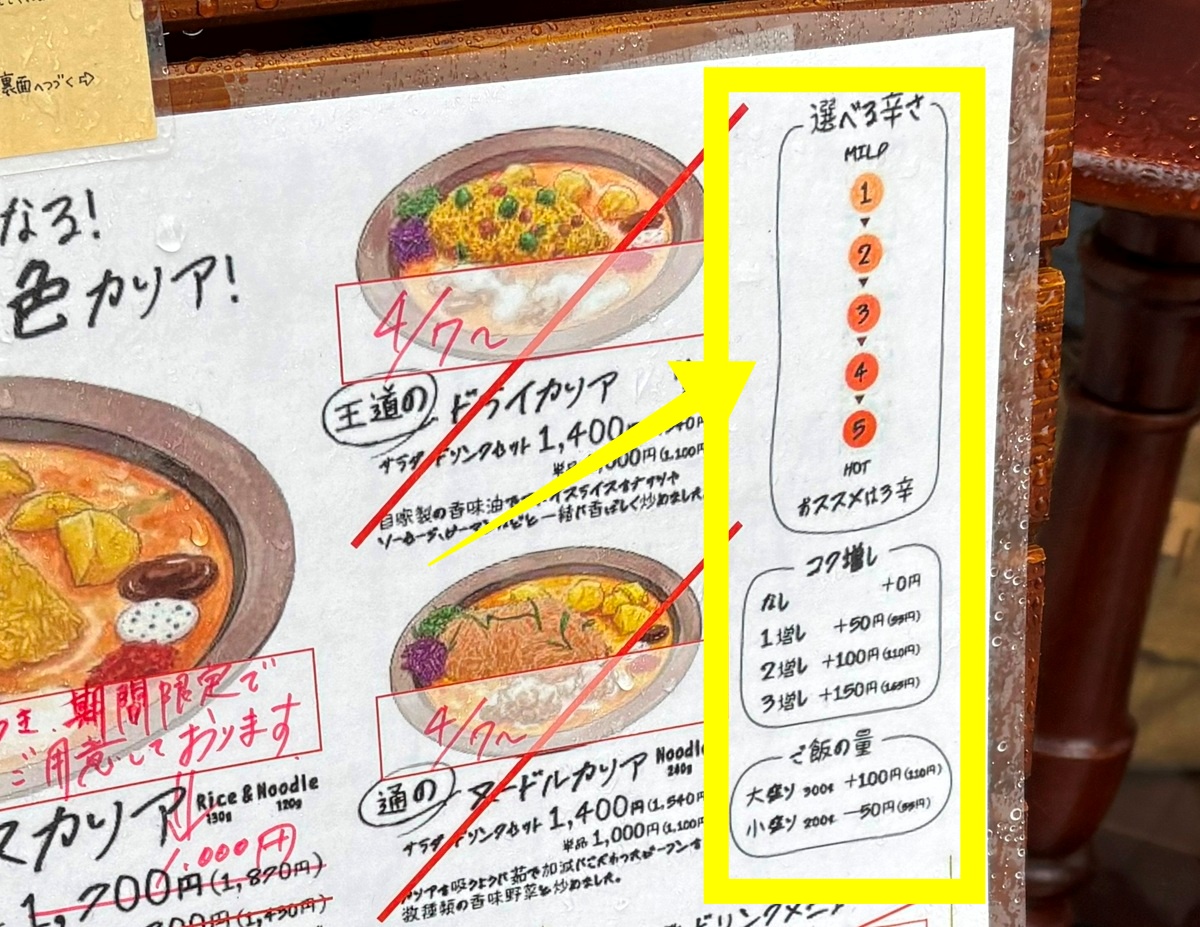 裏面へつづく⇨
なる!
色カリア!
4/7〜
王道の ドライカリア
サラダドリンクセット 1,400円
単品 1,000円(1,100円
自家製の香味油で
一緒に香ばしく炒めました
4/7〜
通の ヌードルカリア Noodle
240g
サラダドリンクセット 1,400円(1,540円
単品 1,000円(1,100円
数種類の香味野菜と炒めました。
期間限定で
ご用意しております
カリア Rice & Noodle
130g 120g
1,000円
1,700円(1,870円)
00円(1,430円)
ドリンクメニュー
選べる辛さ
MILD
1
2
3
4
5
HOT
オススメは3辛
コク増し
なし +0円
1増し +50円(55円)
2増し +100円(110円)
3増し +150円(165円)
ご飯の量
大盛り 300g +100円(110円)
小盛り 200g −50円(55円)